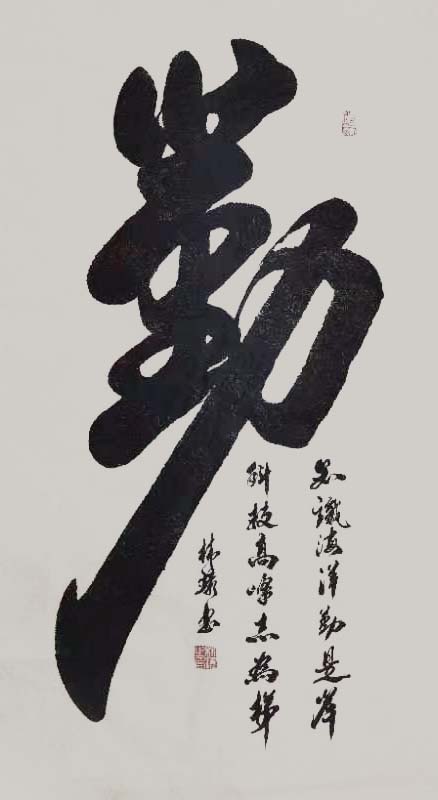 勤
知識海洋勤是岸
科技高峰志為梯
林 书